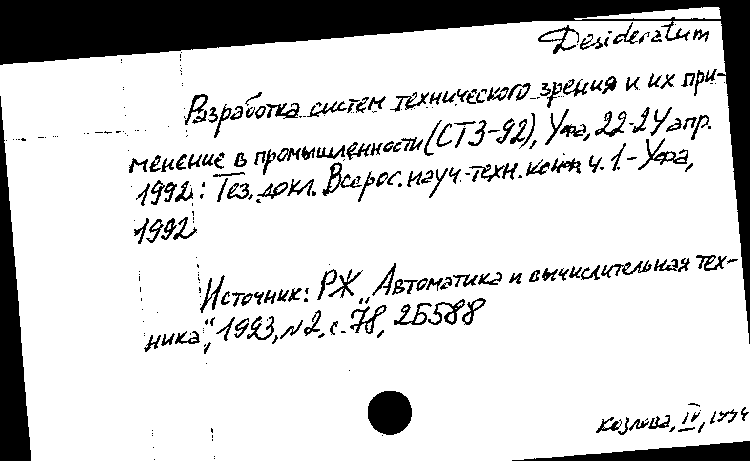 Desideratum
Разработка систем технического зрения и их при-
менение в промышленности (СТЗ-92), Уфа, 22-24 апр.
1992: Тез. докл. Всерос. науч.-техн. конф. ч. 1.- Уфа,
1992
Источник: РЖ „Автоматика и вычислительная тех-
ника", 1993, №2, с. 78, 2Б588
Козлова, IV, 1994